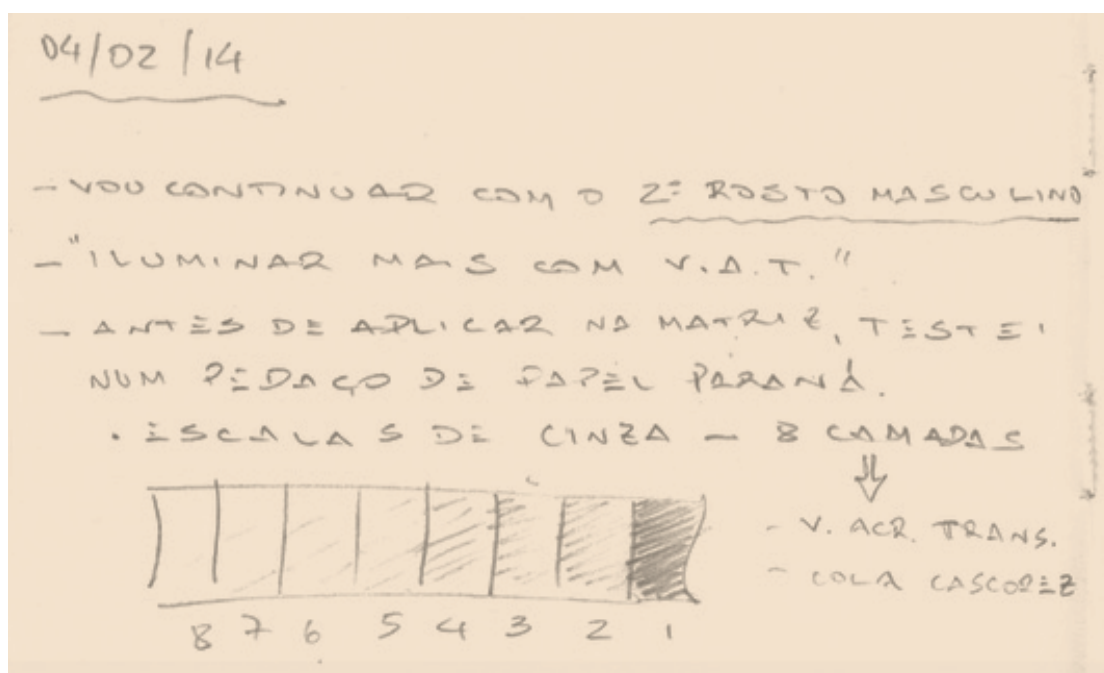 04/02/14
- VOU CONTINUAR COM O 2º ROSTO MASCULINO
- "ILUMINAR MAIS COM V.A.T."
- ANTES DE APLICAR NA MATRIZ, TESTEI
NUM PEDAÇO DE PAPEL PARANÁ.
• ESCALAS DE CINZA - 8 CAMADAS
⇓
- V. ACR. TRANS.
- COLA CASCOREZ
8 7 6 5 4 3 2 1